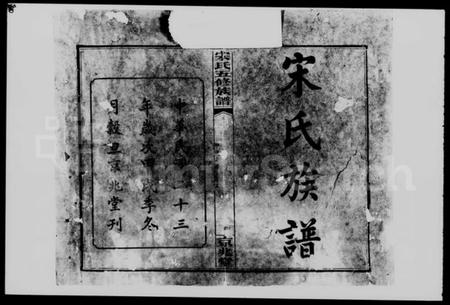 宋氏族譜
宋氏五修族譜
京兆堂
中華民國二十三
年歲次甲戌季冬
月穀旦京兆堂刊